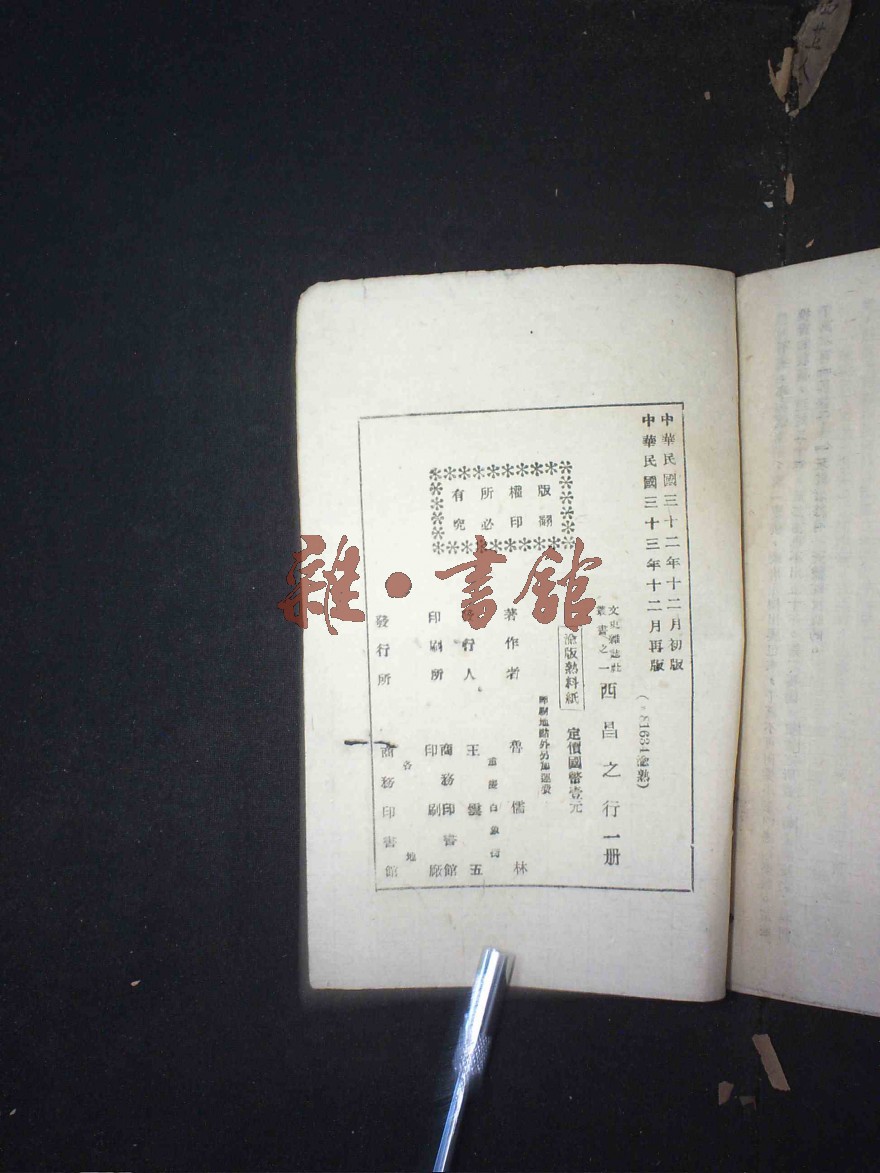 中華民國三十二年十二月初版
中華民國三十三年十二月再版
(81631渝熟)
文史雜誌社
叢書之一
西昌之行一册
渝版熟料紙
定價國幣壹元
印刷地點外另加運費
著作者 魯儒林
重慶白象街
發行人 王雲五
印刷所 商務印書館
印刷廠
發行所 各地
商務印書館
版權所有
翻印必究
雜·書館